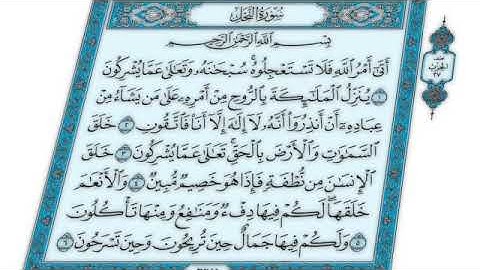 سُورَةُ النَّحْلِ
بِسْمِ اللَّهِ الرَّحْمَٰنِ الرَّحِيمِ
أَتَىٰ أَمْرُ اللَّهِ فَلَا تَسْتَعْجِلُوهُ سُبْحَانَهُ وَتَعَالَىٰ عَمَّا يُشْرِكُونَ
١ يُنَزِّلُ الْمَلَائِكَةَ بِالرُّوحِ مِنْ أَمْرِهِ عَلَىٰ مَن يَشَاءُ مِنْ
عِبَادِهِ أَنْ أَنذِرُوا أَنَّهُ لَا إِلَٰهَ إِلَّا أَنَا فَاتَّقُونِ ٢ خَلَقَ
السَّمَاوَاتِ وَالْأَرْضَ بِالْحَقِّ تَعَالَىٰ عَمَّا يُشْرِكُونَ ٣ خَلَقَ
الْإِنسَانَ مِن نُّطْفَةٍ فَإِذَا هُوَ خَصِيمٌ مُّبِينٌ ٤ وَالْأَنْعَامَ
خَلَقَهَا لَكُمْ فِيهَا دِفْءٌ وَمَنَافِعُ وَمِنْهَا تَأْكُلُونَ
٥ وَلَكُمْ فِيهَا جَمَالٌ حِينَ تُرِيحُونَ وَحِينَ تَسْرَحُونَ ٦